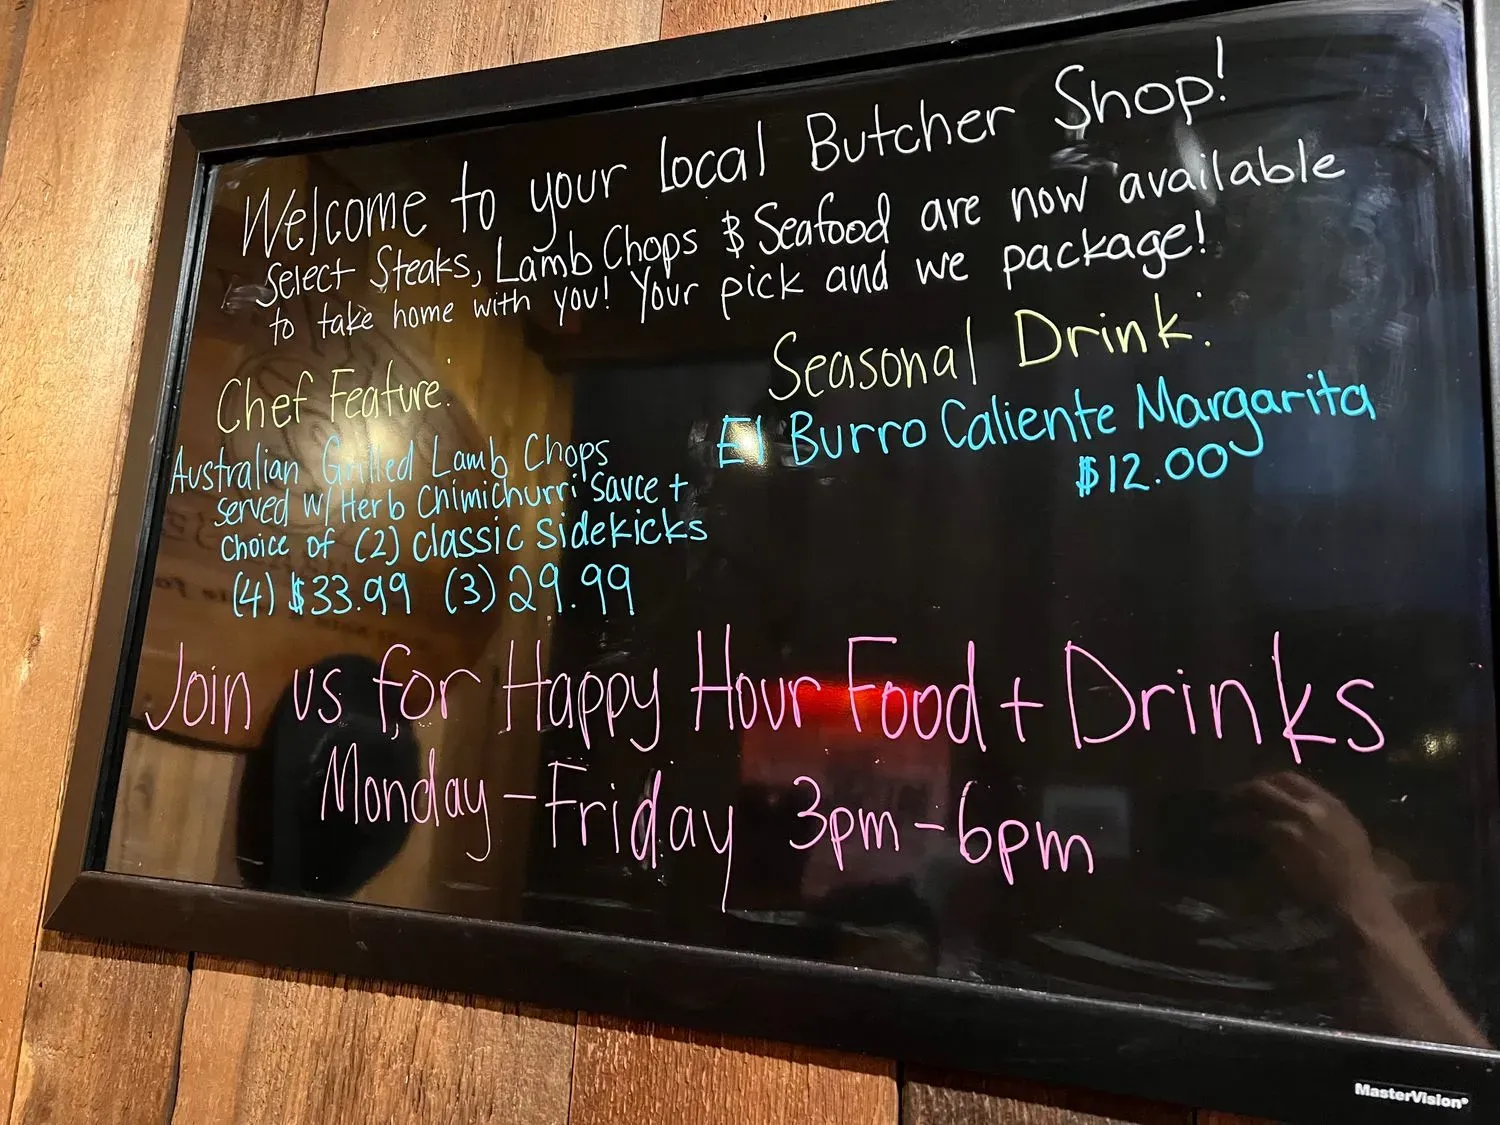 Welcome to your local Butcher Shop!
Select Steaks, Lamb Chops & Seafood are now available
to take home with you! Your pick and we package!
Chef Feature:
Australian Grilled Lamb Chops
served w/ Herb Chimichurri sauce +
choice of (2) classic sidekicks
(4) $33.99 (3) 29.99
Seasonal Drink:
El Burro Caliente Margarita
$12.00
Join us for Happy Hour Food + Drinks
Monday - Friday 3pm - 6pm
MasterVision®